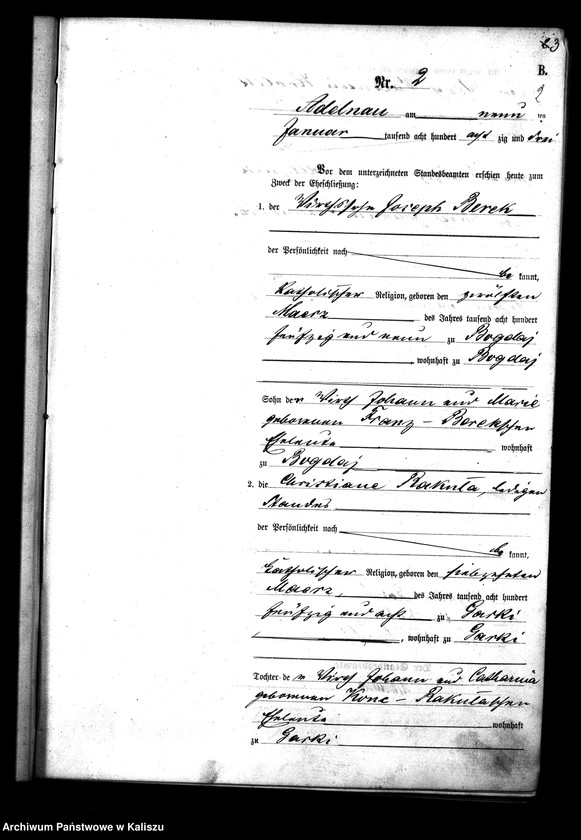 23
B.
Nr. 2
2
Adelnau am neun ten
Januar tausend acht hundert acht zig und drei
Vor dem unterzeichneten Standesbeamten erschien heute zum
Zweck der Eheschließung:
1. der Wirthssohn Joseph Berek
der Persönlichkeit nach
be kannt,
katholischer Religion, geboren den zwölften
Maerz des Jahres tausend acht hundert
fünfzig und neun zu Bogdaj
, wohnhaft zu Bogdaj
Sohn der Wirth Johann und Marie
geborenen Franz - Berekschen
Eheleute wohnhaft
zu Bogdaj
2. die Christiane Rakuta, ledigen
Standes
der Persönlichkeit nach
be kannt,
katholischer Religion, geboren den siebzehnten
Maerz, des Jahres tausend acht hundert
fünfzig und acht zu Garki
, wohnhaft zu Garki
Tochter de r Wirth Johann und Catharina
geborenen Konc - Rakutaschen
Eheleute wohnhaft
zu Garki
Archiwum Państwowe w Kaliszu